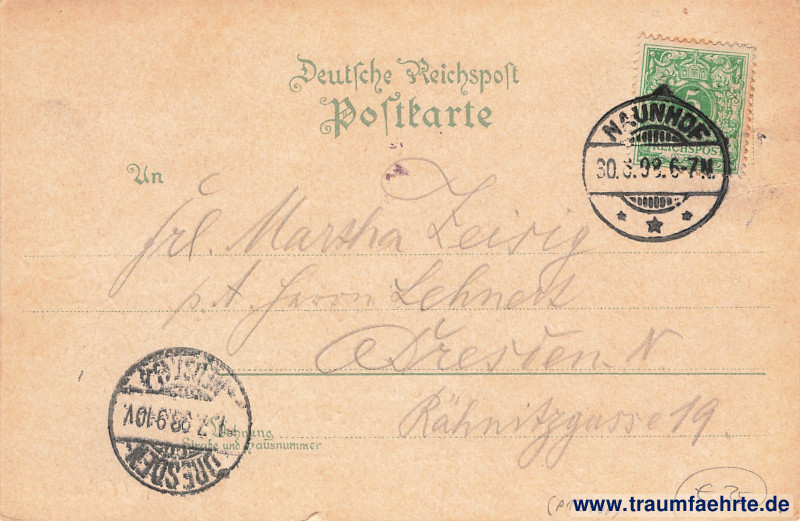 Deutsche Reichspost
Postkarte
5
REICHSPOST
NAUNHOF
30.6.98.6-7N.
An
Frl. Martha Zeisig
p. A. Herrn Lehnert
Dresden. N.
Wohnung
Straße und Hausnummer
Rähnitzgasse 19.
DRESDEN
1.7.98.9-10V.
www.traumfaehrte.de